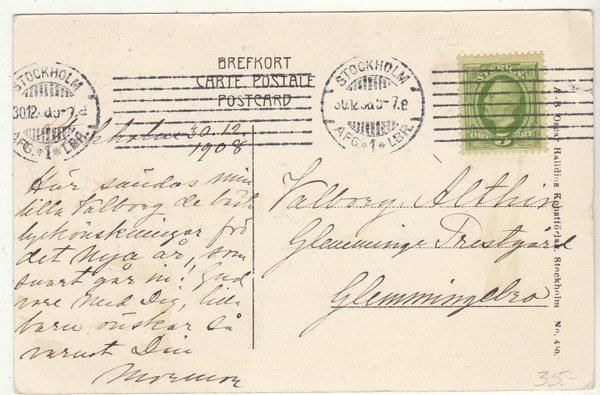 BREFKORT
CARTE POSTALE
POSTCARD
STOCKHOLM
30.12. 7.e
AFG. *1* LBR.
STOCKHOLM
30.12. 7.e
AFG. *1* LBR.
SVERIGE
5
30.12.
1908
Här sändas min
lilla Valborg de bäst
lyckönskningar frö
det nya år, som
snart går in! Gud
vare med Dig, lilla
barn önskar så
varmt Din
Mormor
Valborg Althin
Glemminge Prestgård
Glemmingebro
Konstförlag, Stockholm No. 430.
35:-